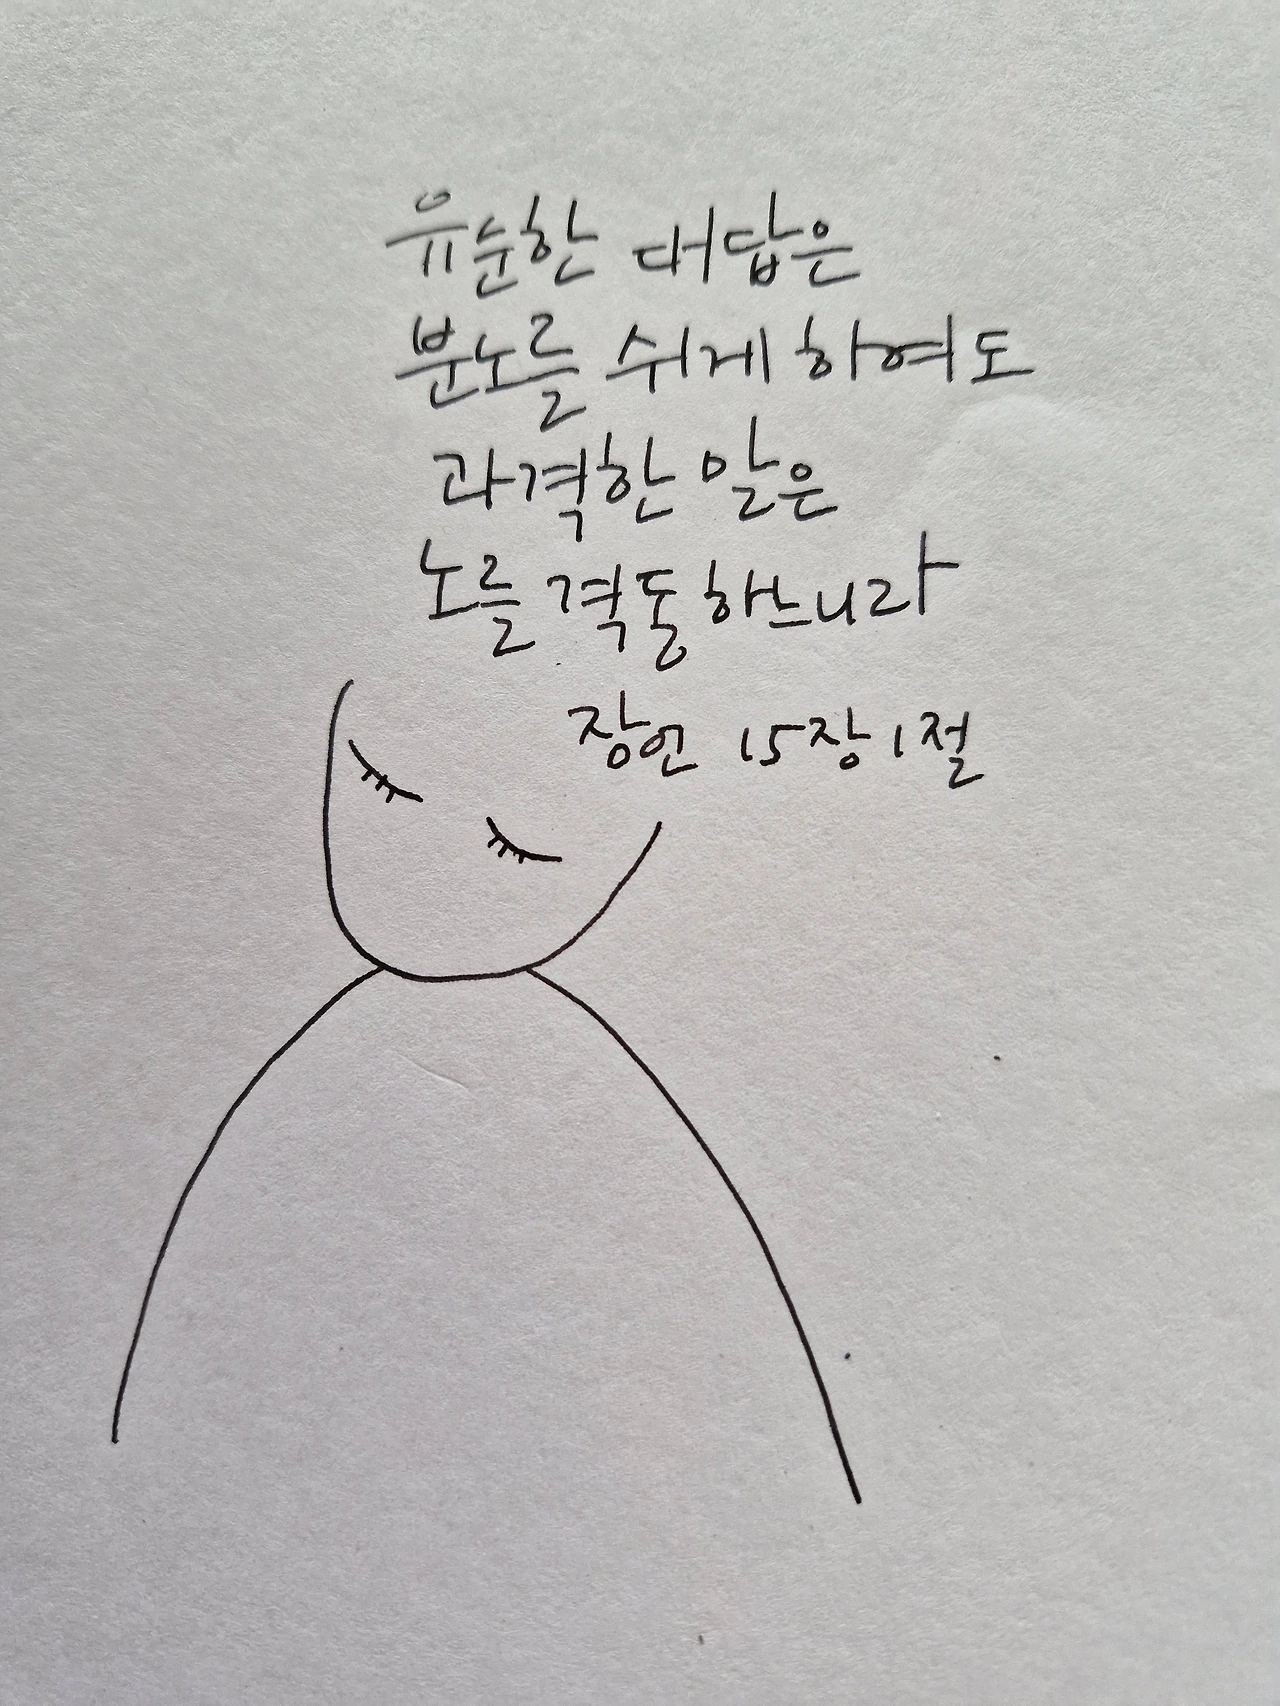 유순한 대답은
분노를 쉬게 하여도
과격한 말은
노를 격동하느니라
장언 15장 1절